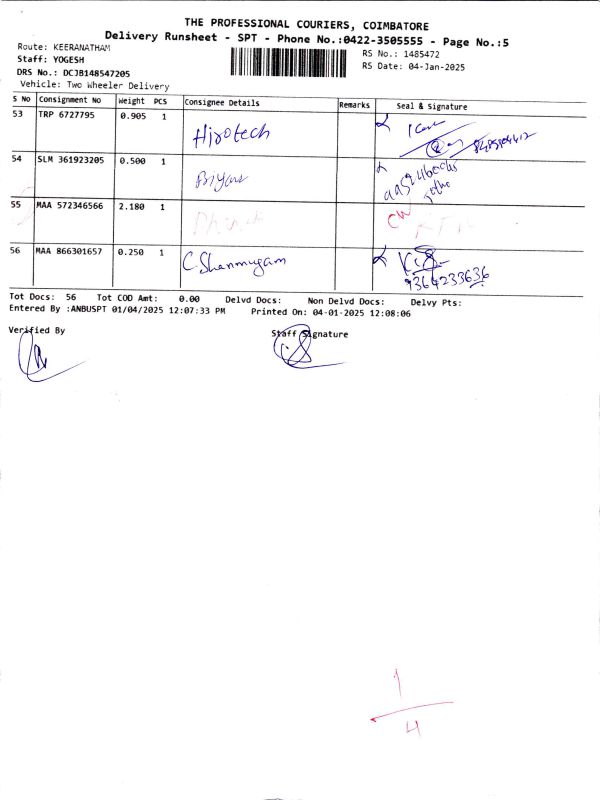 THE PROFESSIONAL COURIERS, COIMBATORE
Delivery Runsheet - SPT - Phone No.:0422-3505555 - Page No.:5
Route: KEERANATHAM
RS No.: 1485472
Staff: YOGESH
RS Date: 04-Jan-2025
DRS No.: DCJB148547205
Vehicle: Two Wheeler Delivery
S No Consignment No Weight PCS Consignee Details Remarks Seal & Signature
53 TRP 6727795 0.905 1 Hirotech
54 SLM 361923205 0.500 1
55 MAA 572346566 2.180 1
56 MAA 866301657 0.250 1 C. Shanmugam
9364233636
Tot Docs: 56 Tot COD Amt: 0.00 Delvd Docs: Non Delvd Docs: Delvy Pts:
Entered By :ANBUSPT 01/04/2025 12:07:33 PM Printed On: 04-01-2025 12:08:06
Verified By Staff Signature
1
4